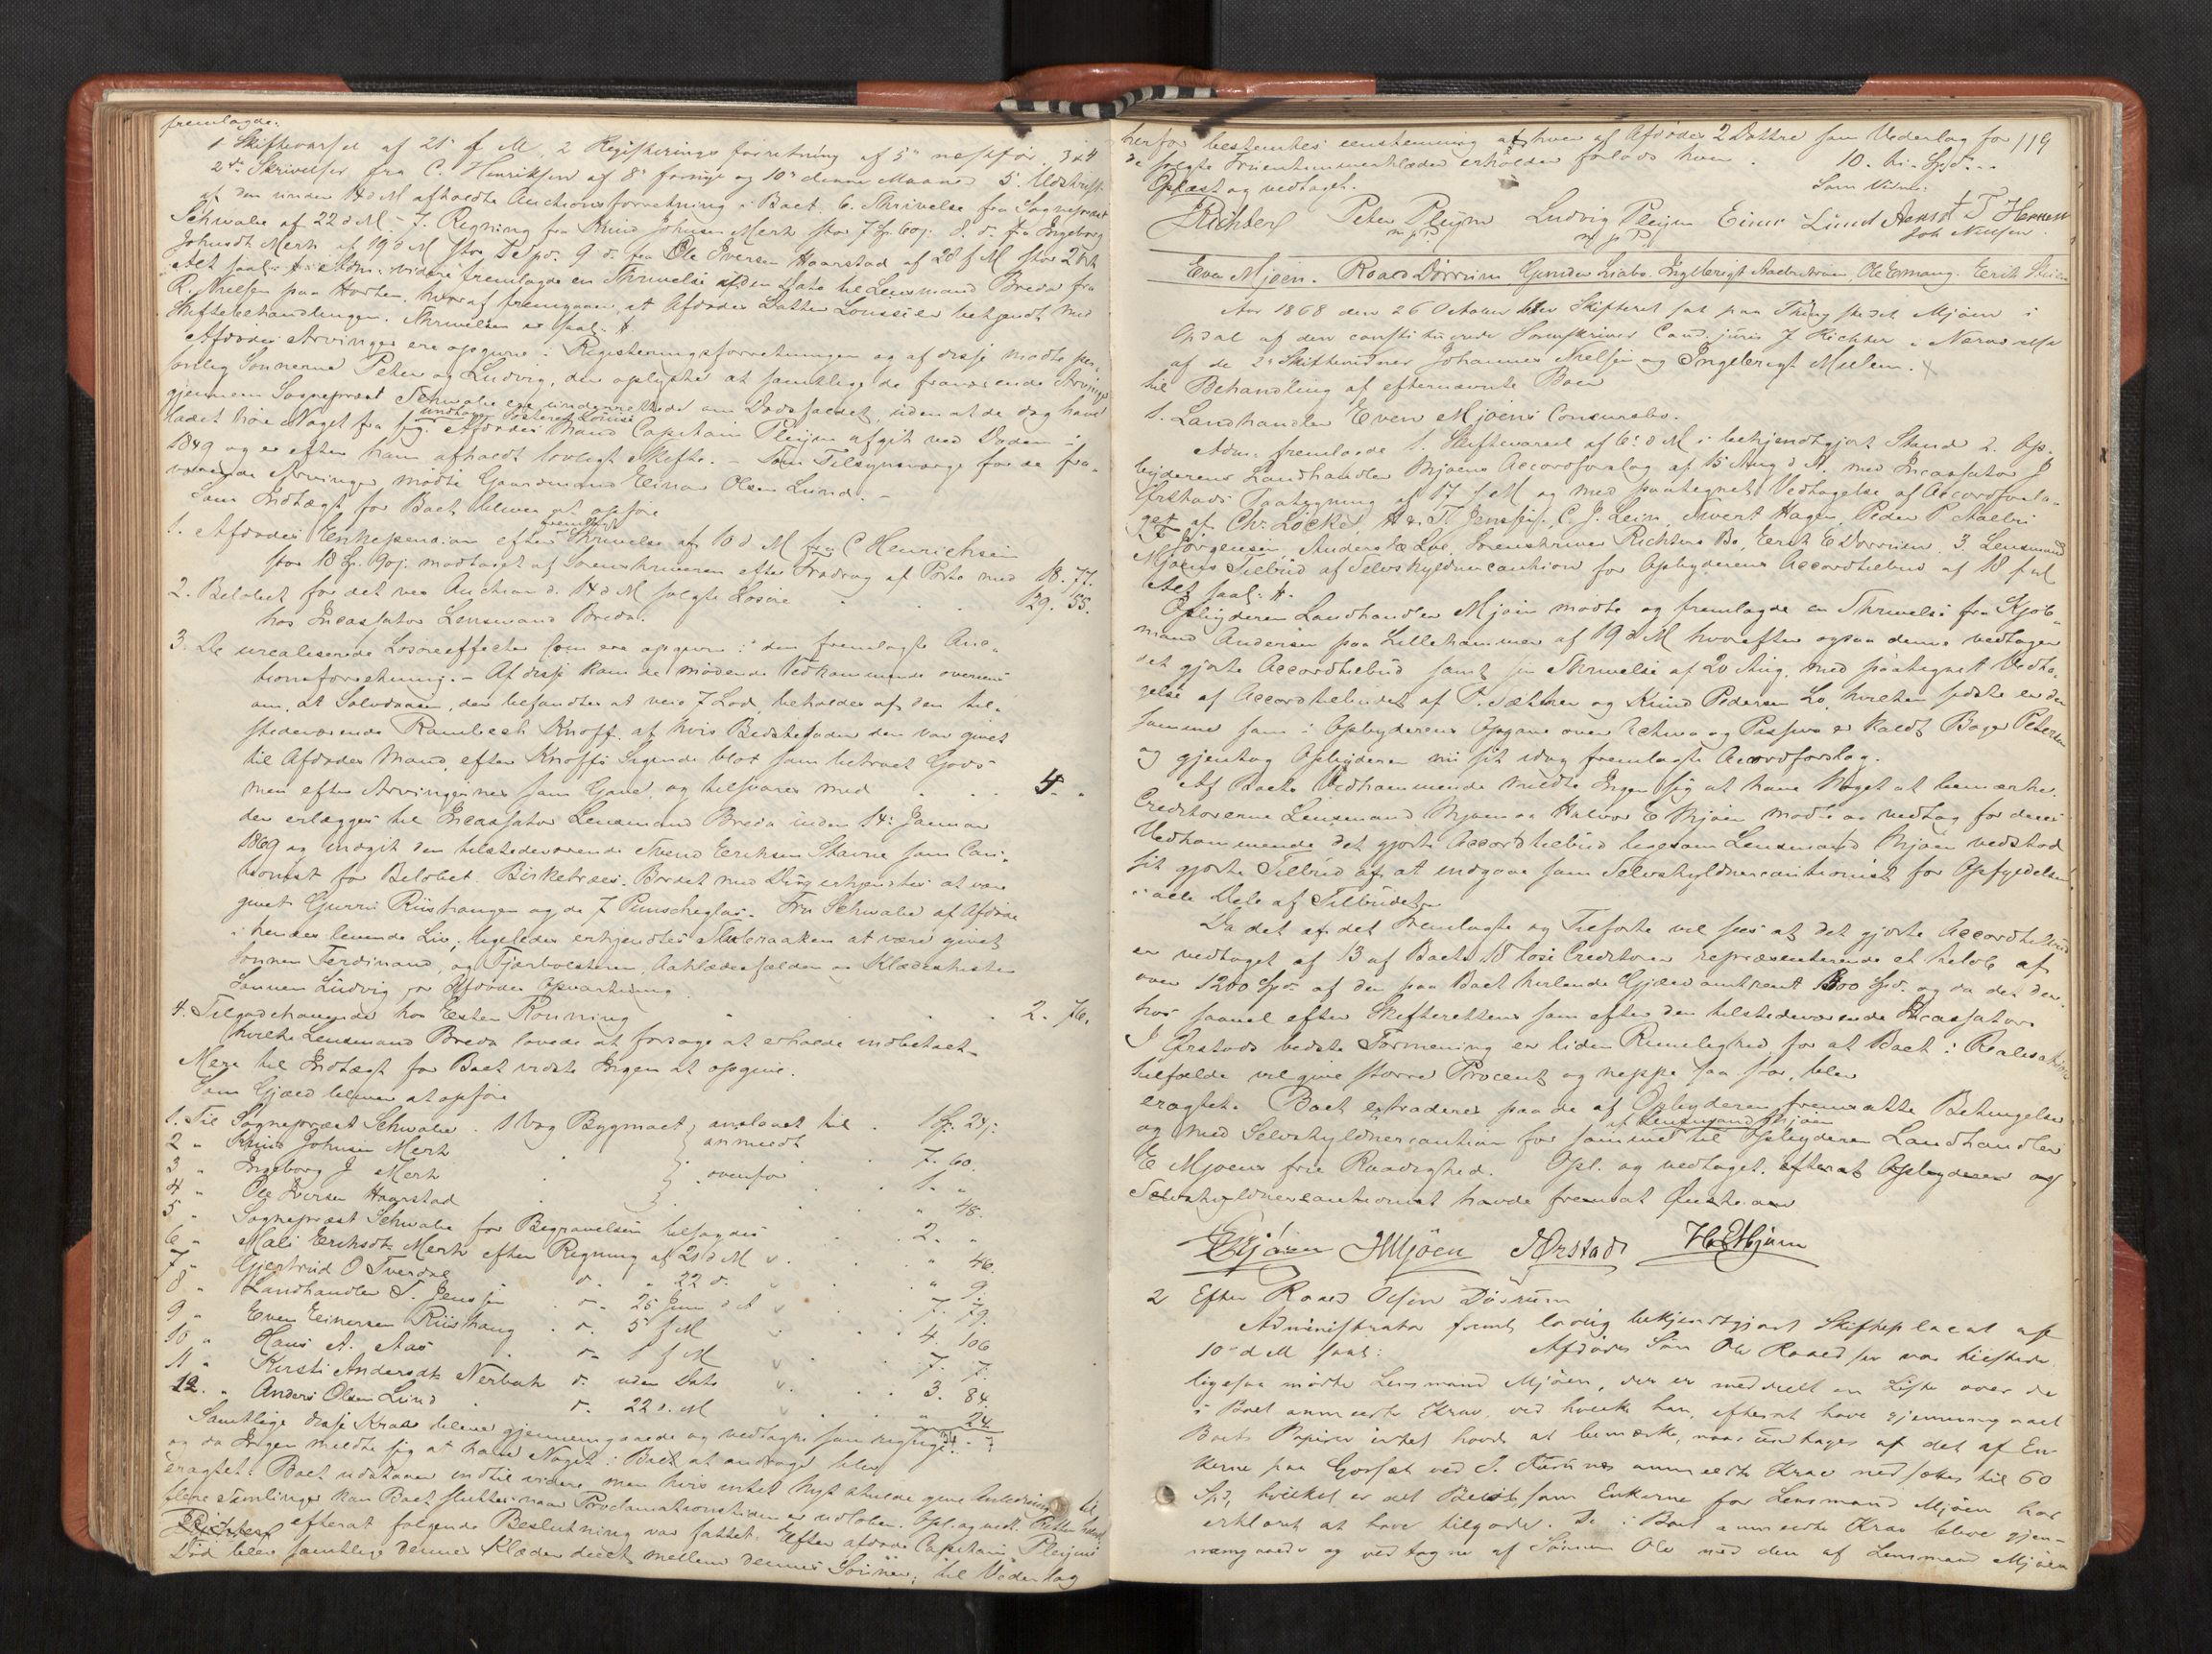 fremlagde:
1 Skiftevarsel af 21 f M, 2 Registerings forretning af 5 næstfør. 3 & 4
2de Skrivelser fra C. Henriksen af 8de forrige og 10de denne Maaned 5. Udskrift
af den under 14 d M afholdte Auctionsforretning i Boet. 6. Skrivelse fra Sognepræst
Schwabe af 22 d M. 7. Regning fra Knud Johnsen Merk stor 7 Sp. 60 s. 8. d. fra Ingeborg
Johnsdt Merk af 19 d M stor 1 Spd. 9 d. fra Ole Iversen Haarstad af 28 f M stor 2
Alt saal. Adm. videre fremlagde en Skrivelse uden Dato til Lensmand Breda fra
R. Nielsen paa Horten, hvoraf fremgaaer, at Afdødes Datter Louise er bekjendt med
Skiftebehandlingen. Skrivelsen er saal.
Afdødes Arvinger ere opgivne i Registeringsforretningen og af disse mødte per-
sonlig Sønnerne Peter og Ludvig, der oplyste at samtlige de fraværende Arvinger
gjennem Sognepræst Schwabe ere underrettede om Dødsfaldet, uden at de dog have
ladet høre Noget fra sig. undtagen Datteren Louise Afdødes Mand Capitain Pleym afgik ved Døden i
1849 og er efter ham afholdt lovligt Skifte. - Som Tilsynsværge for de fra-
værende Arvinger mødte Gaardmand Einar Olsen Lund. -
Som Indtægt for Boet blever at opføre
1. Afdødes Enkepension efter fremlagt Skrivelse af 10 d. M fra C Henrichsen
stor 18 Sp. 90 s. modtaget af Sorenskriveren efter Fradrag af Porto med 18. 77.
2. Beløbet for det ved Auction d. 14 d M solgte Løsøre . . . 129. 55.
hos Incassator Lensmand Breda.
3. De urealiserede Løsøreeffecter som ere opgivne i den fremlagte Auc-
tionsforretning. - Af disse kom de mødende Vedkommende overens
om, at Sølvdaasen, der befandtes at veie 7 Lod, beholdes af den til-
stedeværende Rambech Knoff, af hvis Bedstefader den var givet
til Afdødes Mand, efter Knoffs Sigende blot som betroet Gods
men efter Arvingernes som Gave, og tilsvares med . . . 4. "
der erlægges til Incassator Lensmand Breda inden 14: Januar
1869 og indgik den tilstedeværende Svend Eriksen Stavne som Cau-
tionist for Beløbet. Birketræes Bordet med Dug erkjendtes at være
givet Gjurri Riishaugen og de 7 Punscheglas Fru Schwabe af Afdøde
i hendes levende Liv, ligeledes erkjendtes at være givet
Sønnen Ferdinand, og Fjærbolsteren, Aaklædesfælden og Klædeskisten
Sønnen Ludvig for Afdødes Opvartning.
4. Tilgodehavende hos Esten Rønning . . . 2. 76.
hvilke Lensmand Breda lovede at forsøge at erholde indbetalt.
Mere til Indtægt for Boet vidste Ingen at opgive.
Som Gjæld blever at opføre
1. Til Sognepræst Schwabe. 1 Vog Bygmalt, anslaaet til . 1 Sp. 24 s.
2 " Knud Johnsen Merk } anmeldt . . 7. 60.
3 " Ingeborg J Merk } ovenfor . . 1. "
4 " Ole Iversen Haarstad } . . " 48.
5 " Sognepræst Schwabe for Begravelsen tilsagdes . . 2. "
6 " Mali Eriksdt Merk efter Regning af 21 d M . . " 46.
7 " Gjertrud O Tverdal d. " 22 d. . . " 9.
8 " Landhandler T. Jenssen . d. 25 Juni d A . . 7. 79.
9 " Even Einersen Riishaug . d. 5 f M . . 4. 106
10 " Hans A. Aas . d. 1 f M . . 7. 7.
11 " Kirsti Andersdt Nerbak d. uden Dato . . 3. 84.
12. " Anders Olsen Lund . d. 22 d. M . . " 24
Samtlige disse Krav bleve gjennemgaaede og vedtagne som rigtige
og da Ingen meldte sig at have Noget i Boet at andrage blev
eragtet: Boet udstaaer indtil videre, men hvis intet Nyt skulde give Anledning til
flere Samlinger kan Boet sluttes naar Proclamationstiden er udløben. Opl. og vedt. Retten hævet
Richter efterat følgende Beslutning var fattet. Efter afdøde Capitain Pleyms
Død blev samtlige dennes Klæder deelt mellem dennes Sønner; til Vederlag
119
herfor bestemtes eenstemmig at hver af Afdødes 2 Døttre som Vederlag for
de solgte Fruentimmerklæder erholder forlods hver . 10. ti Spd.
Oplæst og vedtaget. Som Vidner:
JRichter Peter Pleym Ludvig Pleym Einar Lund Arnst T Hansen
m p P m p P Joh Nielsen.
Even Mjøen. Roard Dørrum, Gunder Liabø, Ole Emaug. Erik
Aar 1868 den 26 October blev Skifteret sat paa Thingstedet Mjøen i
Opdal af den constituerede Sorenskriver Cand. juris J Richter i Nærværelse
af de 2de Skiftevidner Johannes Nielsen og Ingebrigt Mulen.
til Behandling af efternævnte Boer
1. Landhandler Even Mjøens Concursbo.
Adm. fremlagde 1. Skiftevarsel af 6: d M i bekjendtgjort Stand 2. Op-
byderens Landhandler Mjøens Accordforslag af 15 Aug d A. med Incassator J
Ørstads Paategning af 17 f M og med paategnet Vedtagelse af Accordforsla-
get af Chr. Löcke, H. & T. Jenssen, C. J. Lein, Sivert Hagen, Peder P Aalbu
Jørgensen, Anders Loe, Sorenskriver Richters Bo, Erik E Dørrum. 3. Lensmand
Mjøens Tilbud af Selvskyldnercaution for Opbyderens Accordtilbud af 18 f M
Alt saal.
Opbyderen Landhandler Mjøen mødte og fremlagde en Skrivelse fra Kjøb-
mand Andersen paa Lillehammer af 19 d M hvorefter ogsaa denne vedtager
det gjorte Accordtilbud samt en Skrivelse af 20 Aug. med paategnet Vedta-
gelse af Accordtilbudet af P. Sæther og Knud Pedersen Lo, hvilken sidste er den
samme som i Opbyderens Opgave over Activa og Passiva er kaldt Bager Petersen
og gjentog Opbyderen nu sit idag fremlagte Accordforslag.
Af Boets Vedkommende meldte Ingen sig at have Noget at bemærke.
Creditorerne Lensmand Mjøen og Halvor E Mjøen mødte og vedtog for deres
Vedkommende det gjorte Accordtilbud ligesom Lensmand Mjøen vedstod
sit gjorte Tilbud af at indgaae som Selvskyldnercautionist for Opfyldelsen
i alle Dele af Tilbudet.
Da det af det Fremlagte og Tilførte vil sees at det gjorte Accordtilbud
er vedtaget af 13 af Boets 18 Creditorer repræsenterende et Beløb af
over 1200 Spd. af den paa Boet hvilende Gjæld omtrent 1300 Spd. og da det der-
hos saavel efter Skifterettens som efter den tilstedeværende Incassators
J Ørstads bedste Formening er liden Rimelighed for at Boet i Realisations-
tilfælde vil give større Procent og neppe saa stor, blev
eragtet: Boet extraderes paa de af Opbyderen fremsatte Betingelser
og med Selvskyldnercaution for samme af Lensmand Mjøen til Opbyderen Landhandler
E Mjøens frie Raadighed. Opl. og vedtaget. efterat Opbyderen og
Selvskyldnercautionist havde fremsat Ønske om
EMjøen JMjöen JØrstad HEMjøen
2 Efter Roard Olsen Dörrum
Administrator freml. lovlig bekjendtgjort Skifteplacat af
10 d M saal: Afdødes Søn Ole Roardsen var tilstede
ligesaa mødte Lensmand Mjöen, der er meddeelt en Liste over de
i Boet anmeldte Krav, ved hvilke han, efterat have gjennemgaaet
Boets Papirer intet havde at bemærke, naar undtages at det af En-
kerne paa Gorset ved S. anmeldte Krav nedsættes til 60
Spd, hvilket er det Beløb som Enkerne for Lensmand Mjøen har
erklæret at have tilgode. De i Boet anmeldte Krav bleve gjen-
nemgaaede og vedtagne af Sønnen Ole med den af Lensmand Mjöen